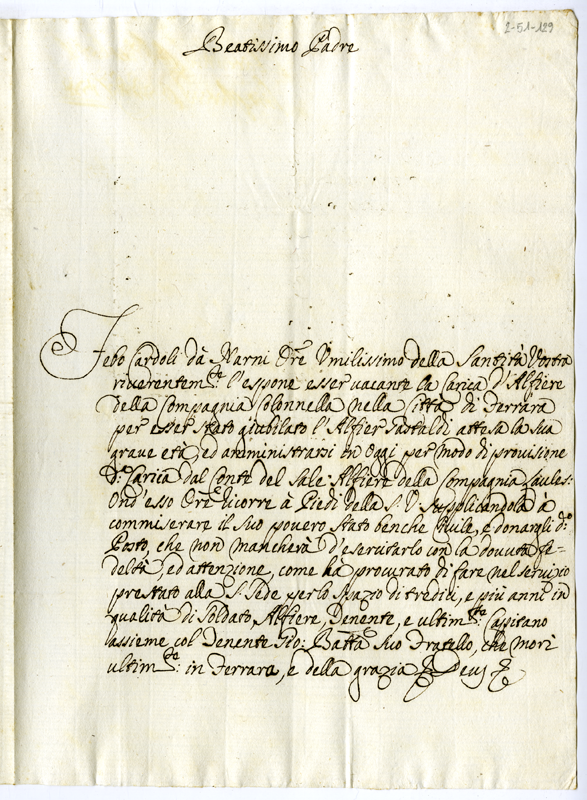 2-51-129
Beatissimo Padre
Febo Cardoli dà Narni Ore Umilissimo della Santità Vostra
riverentem.te l'espone esser vacante la Carica d'Alfiere
della Compagnia Colonnella nella Città di Ferrara
per esser stato giubilato l'Alfier Sastaldi attesa la sua
grave età, ed amministrarsi in oggi per modo di provisione
d.a Carica dal Conte del Sale Alfiere della Compagnia
Ond'esso Ore ricorre à Piedi della S. V. supplicandola à
commiserare il suo povero stato benche Civile, e donargli d.o
Posto, che non mancherà d'esercitarlo con la dovuta fe-
deltà, ed attenzione, come hà procurato di fare nel servizio
prestato alla S. Sede per lo spazio di tredici, e più anni in
qualità di Soldato, Alfiere, Tenente, e ultim.te Capitano
assieme col Tenente Gio: Batta suo Fratello, che morì
ultim.te in Ferrara, e della grazia Deus